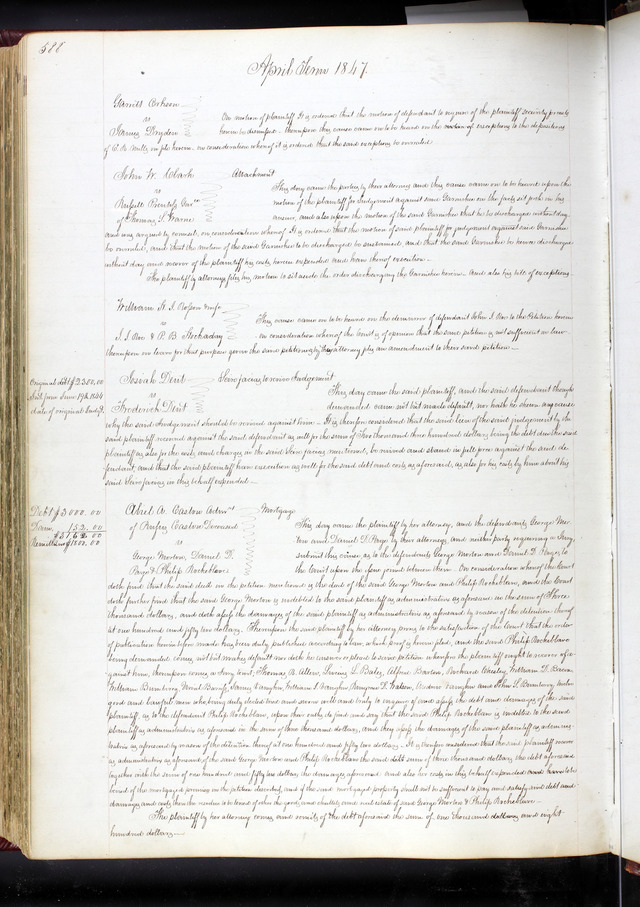 588
April Term 1847.
Garritt Orhson
vs
James Dryden
On motion of plaintiff It is ordered that the motion of defendant to require of the plaintiff security for costs
herein be dismissed - thereupon this cause came on to be heard on the motion of exceptions to the depositions
of C. R. Mills in pls herein - on consideration whereof it is ordered that the said exceptions be overruled
John W. Clark Attachment
vs
Russell Prentiss Gar.
of Thomas S. Warne
This day came the parties by their attornies and this cause came on to be heard upon the
motion of the plaintiff for Judgement against said Garnishee on the facts set forth in his
answer, and also upon the motion of the said Garnishee that he be discharged without day
and was argued by counsel, on consideration whereof It is ordered that the motion of said plaintiff for judgement against said Garnishee
be overruled, and that the motion of the said Garnishee to be discharged be sustained, and that the said Garnishee be hence discharged
without day and recover of the plaintiff his costs herein expended and have thereof execution -
The plaintiff by attorney files his motion to set aside the order discharging the Garnishee herein - And also his bill of exceptions
William St. J. & wife
vs
J. J. Roe & P. B. Hockaday
This cause came on to be heard on the demurrer of defendant John J. Roe to the Petition herein
- on consideration whereof the Court is of opinion that the said petition is not sufficient in law
thereupon on leave for that purpose given the said petitioners by their attorney file an amendment to their said petition -
Original debt $2300.00
date of original Judgt.
Josiah Dent Scire facias to revive Judgement
vs
Frederick Dent
This day came the said plaintiff, and the said defendant though
demanded came not but made default, nor hath he shewn any cause
why the said Judgement should be revived against him - It is therefore considered that the said lien of the said judgement by the
said plaintiff recovered against the said defendant as well for the sum of Two thousand three hundred dollars being the debt due the said
plaintiff as also for the costs and charges in the said Scire facias mentioned, be revived and stand in full force against the said de-
fendant, and that the said plaintiff have execution as well for the said debt and costs as aforesaid, as also for his costs by him about his
said Scire facias in this behalf expended -
Debt $3000.00
Dam. 152.00
$3152.00
Remittitur of 1800.00
Abel A. Easton Admr. Mortgage
of Rufus Easton Deceased
vs
George Morton, Daniel D.
Page & Philip Rocheblave
This day came the plaintiff by her attorney, and the defendants George Mor-
ton and Daniel D. Page by their attorneys and neither party requiring a Jury,
submit this cause as to the defendants George Morton and Daniel D. Page, to
the Court upon the issue joined between them - On consideration whereof the Court
doth find that the said deed in the petition mentioned is the deed of the said George Morton and Philip Rocheblave, and the Court
doth further find that the said George Morton is indebted to the said plaintiff as administratrix as aforesaid in the sum of Three
thousand dollars, and doth assess the damages of the said plaintiff as administratrix as aforesaid by reason of the detention thereof
at one hundred and fifty two dollars. Thereupon the said plaintiff by her attorney proves to the satisfaction of the Court that the order
of publication herein before made has been duly published according to law, which proof is here filed, and the said Philip Rocheblave
being demanded comes not but making default nor doth he answer or plead to said petition wherefore the plaintiff ought to recover a-
gainst him, thereupon comes a Jury to wit, Thomas A. Allen, L. Bailey, Alfred Barton, Richard Wesley, William D. Bacon
William Bromberry, James Vaughn, William S. Vaughn, Benjamin F. Walton, Vaughn and John S. Bromberry, twelve
good and lawful men who being duly elected tried and sworn well and truly to enquire of and assess the debt and damages of the said
plaintiff, as to the defendant Philip Rocheblave, upon their oaths do find and say that the said Philip Rocheblave is indebted to the said
plaintiff as administratrix as aforesaid in the sum of three thousand dollars, and they assess the damages of the said plaintiff as admin-
istratrix as aforesaid by reason of the detention thereof at one hundred and fifty two dollars - It is therefore considered that the said plaintiff recover
as administratrix as aforesaid of the said George Morton and Philip Rocheblave the said debt sum of three thousand dollars the debt aforesaid
together with the sum of one hundred and fifty two dollars the damages aforesaid and also her costs in this behalf expended and have to be
levied of the mortgaged premises in the petition described, and if the said mortgaged property shall not be sufficient to pay and satisfy said debt and
damages and costs then the residue to be levied of other the goods and chattels and real estate of said George Morton & Philip Rocheblave -
The plaintiff by her attorney comes and remits of the debt aforesaid the sum of one thousand dollars and eight
hundred dollars -